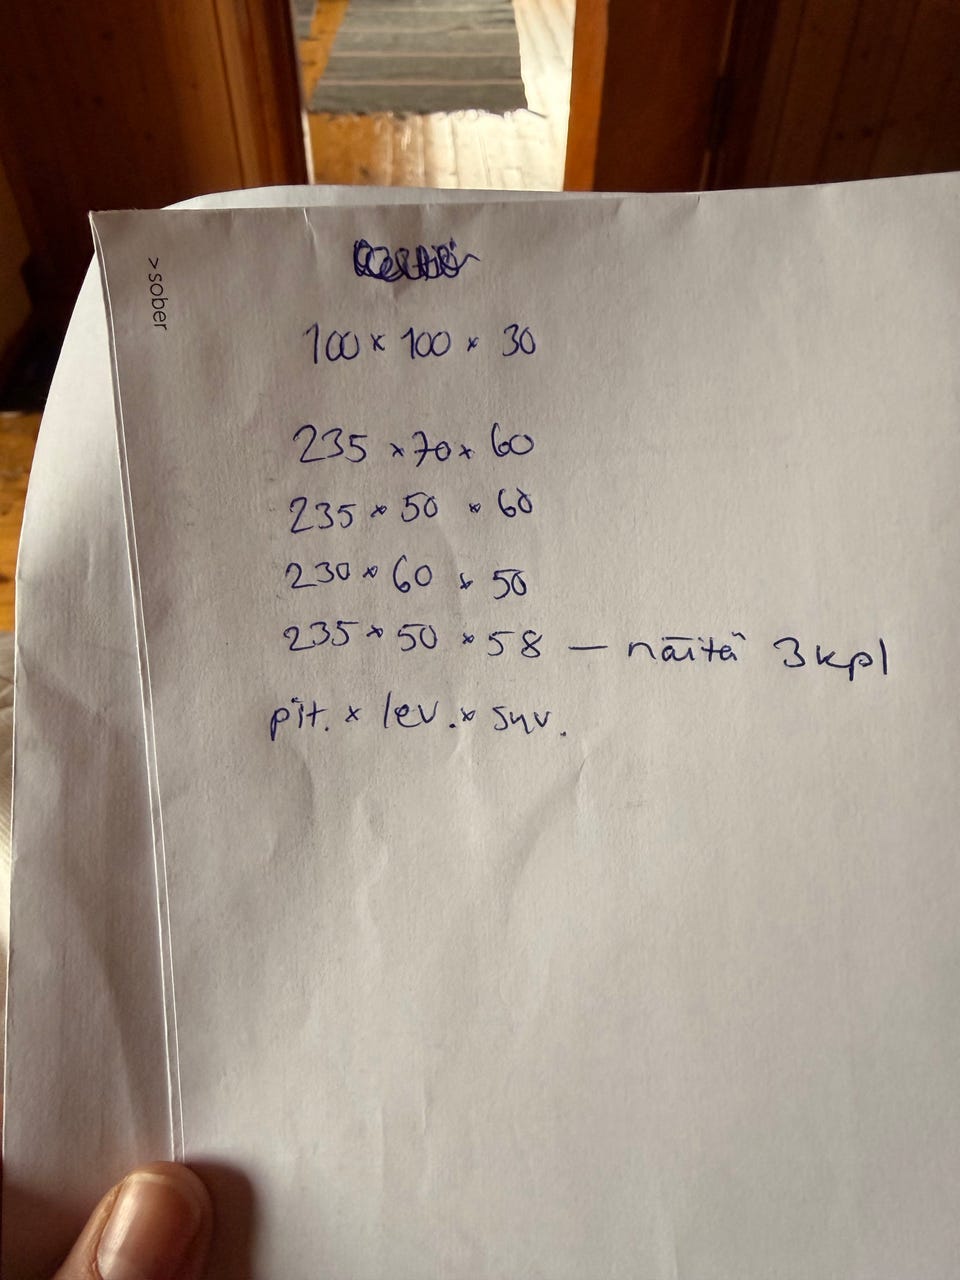 >sober
100 x 100 x 30
235 x 70 x 60
235 x 50 x 60
230 x 60 x 50
235 x 50 x 58 — näitä 3 kpl
pit. x lev. x syv.